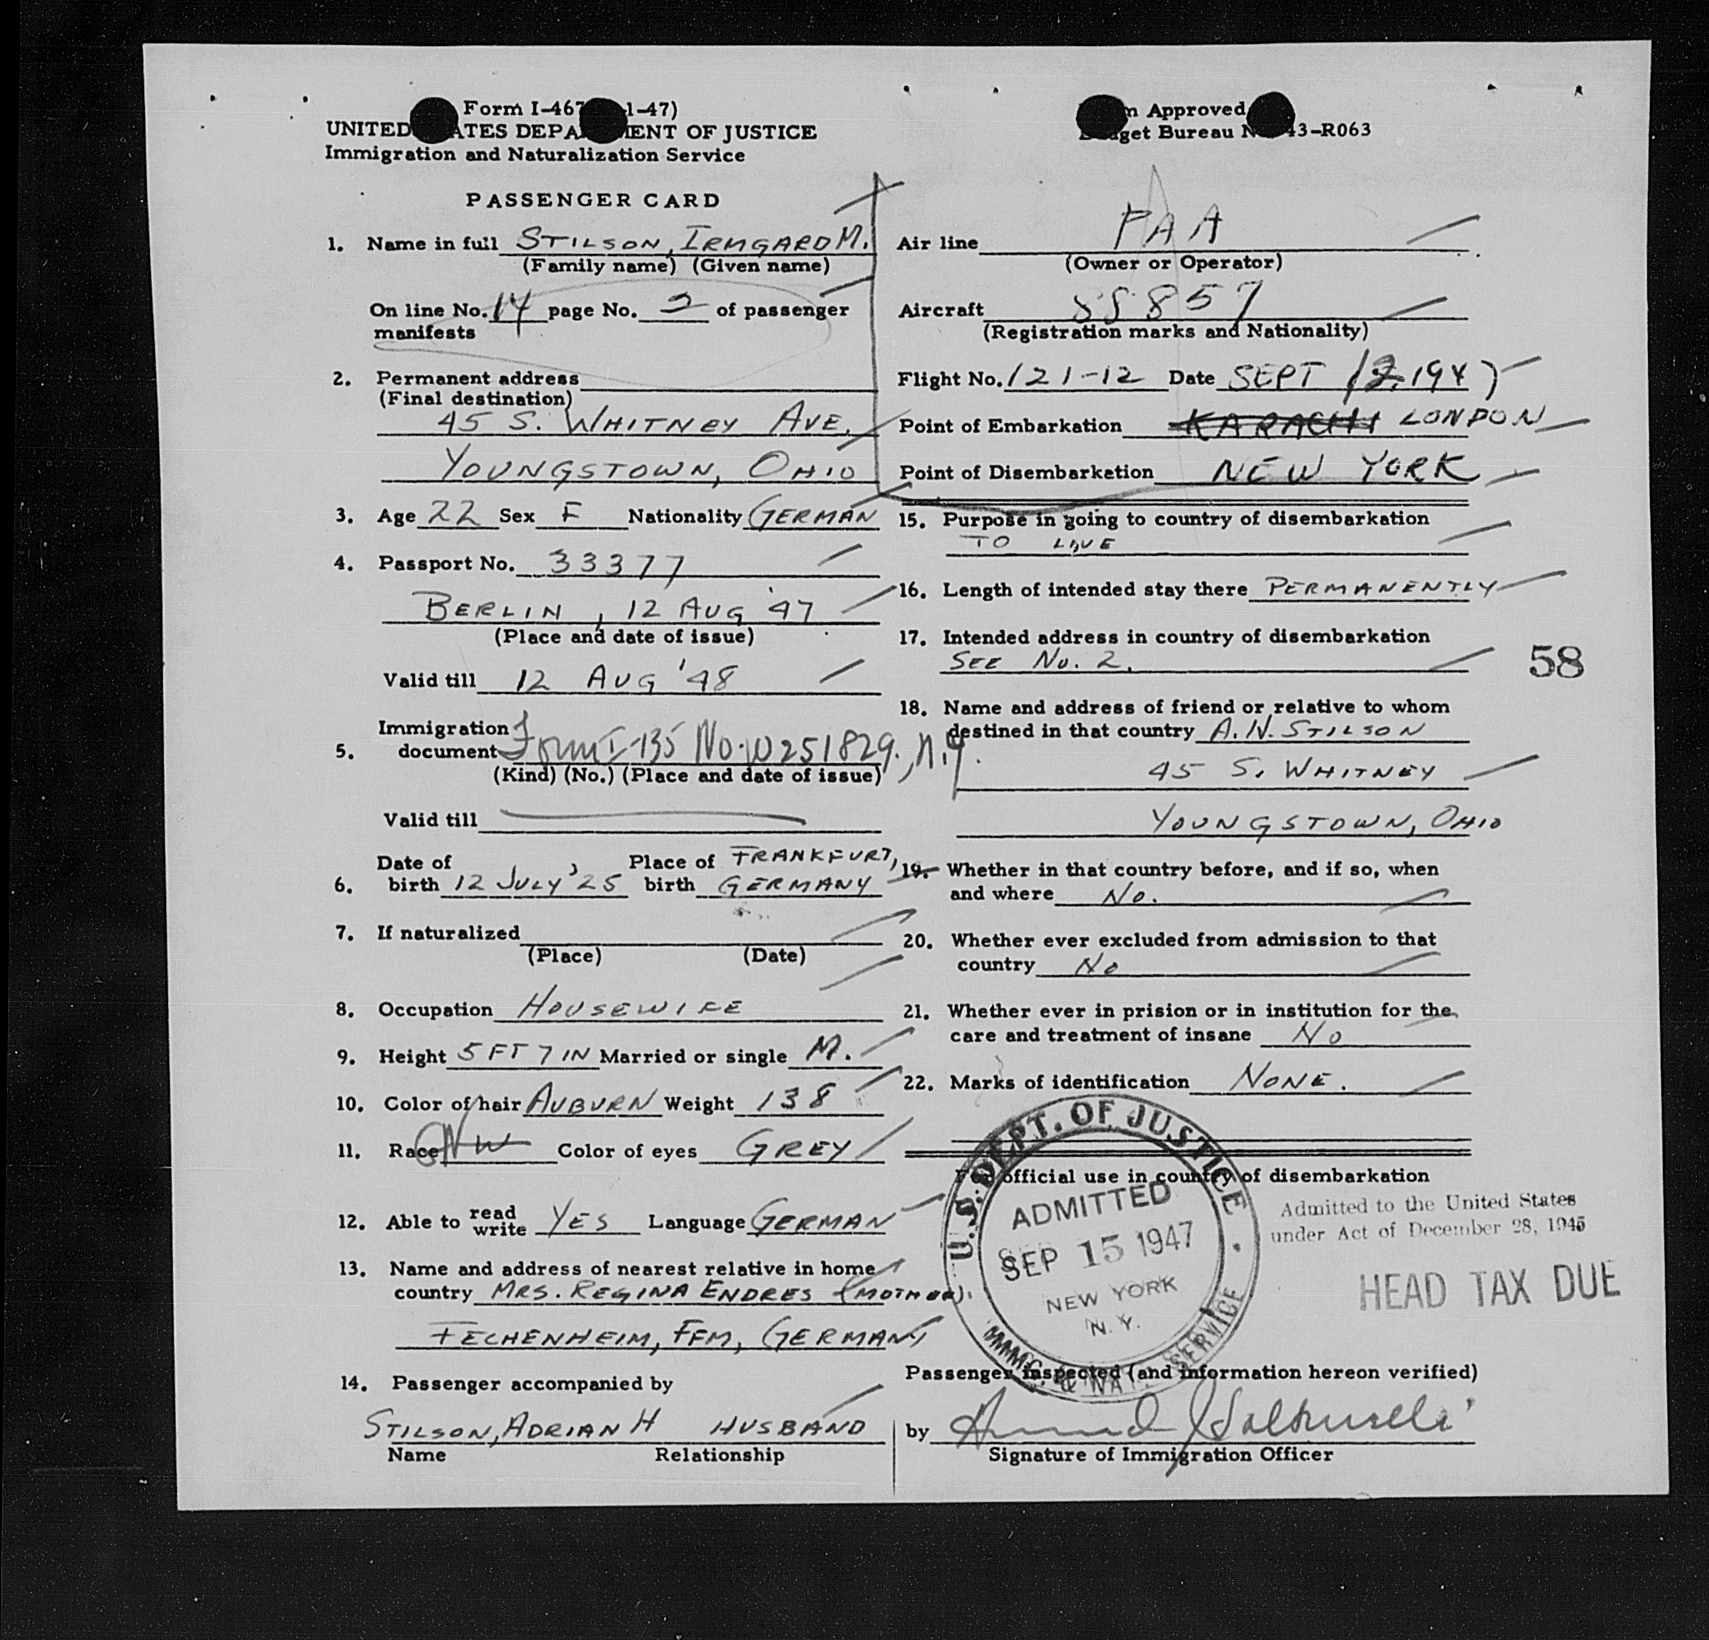 Form I-467 1-47)
UNITED STATES DEPARTMENT OF JUSTICE
Immigration and Naturalization Service
PASSENGER CARD
1. Name in full STILSON, IRMGARD M.
(Family name) (Given name)
On line No. 14 page No. 2 of passenger
manifests
2. Permanent address
(Final destination)
45 S. WHITNEY AVE.
YOUNGSTOWN, OHIO
3. Age 22 Sex F Nationality GERMAN
4. Passport No. 33377
BERLIN, 12 AUG '47
(Place and date of issue)
Valid till 12 AUG '48
Immigration
5. document Form I-135 No. W251829., N.Y.
(Kind) (No.) (Place and date of issue)
Valid till
Date of Place of FRANKFURT,
6. birth 12 JULY '25 birth GERMANY
7. If naturalized
(Place) (Date)
8. Occupation HOUSEWIFE
9. Height 5 FT 7 IN Married or single M.
10. Color of hair AUBURN Weight 138
11. Race W Color of eyes GREY
12. Able to read write YES Language GERMAN
13. Name and address of nearest relative in home
country MRS. REGINA ENDRES (MOTHER).
FECHENHEIM, FFM, GERMANY
14. Passenger accompanied by
STILSON, ADRIAN H HUSBAND
Name Relationship
Form Approved
Budget Bureau No. 43-R063
Air line PAA
(Owner or Operator)
Aircraft 88857
(Registration marks and Nationality)
Flight No. 121-12 Date SEPT 12, 1947
Point of Embarkation KARACHI LONDON
Point of Disembarkation NEW YORK
15. Purpose in going to country of disembarkation
TO LIVE
16. Length of intended stay there PERMANENTLY
17. Intended address in country of disembarkation
SEE No. 2.
58
18. Name and address of friend or relative to whom
destined in that country A.N. STILSON
45 S. WHITNEY
YOUNGSTOWN, OHIO
19. Whether in that country before, and if so, when
and where No.
20. Whether ever excluded from admission to that
country No
21. Whether ever in prision or in institution for the
care and treatment of insane No
22. Marks of identification NONE.
For official use in country of disembarkation
U.S. DEPT. OF JUSTICE
ADMITTED
SEP 15 1947
NEW YORK
N.Y.
IMMIG. & NAT. SERVICE
Admitted to the United States
under Act of December 28, 1945
HEAD TAX DUE
Passenger inspected (and information hereon verified)
by
Signature of Immigration Officer